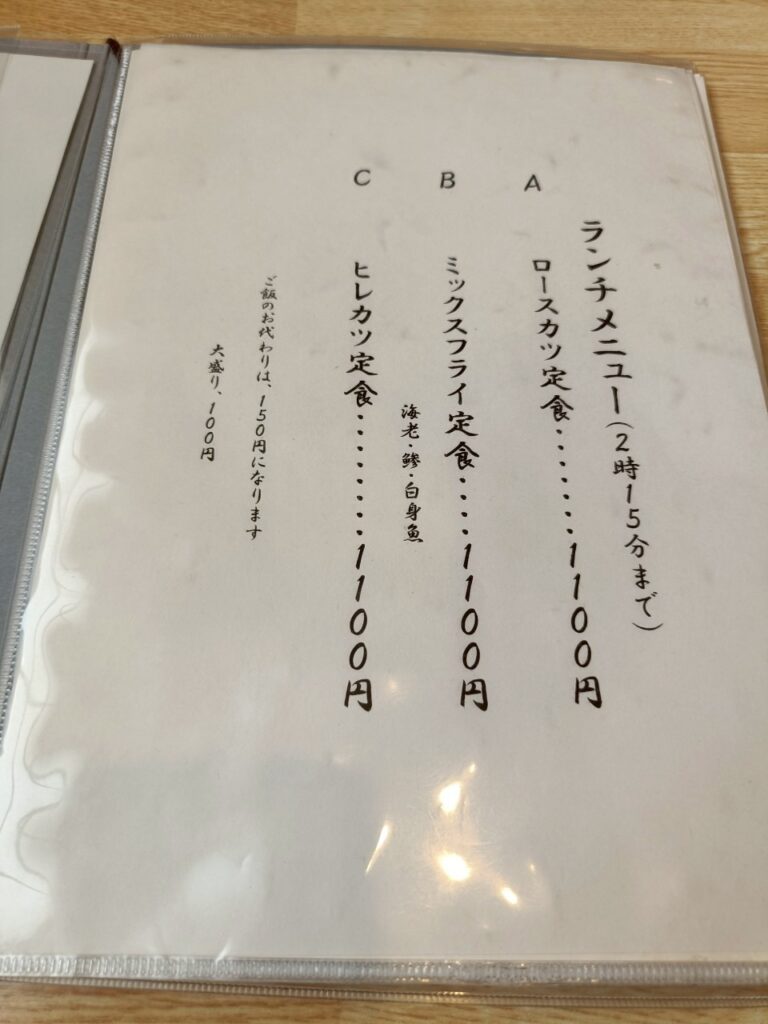 ランチメニュー(2時15分まで)
A ロースカツ定食・・・・・・・1100円
B ミックスフライ定食・・・・1100円
海老・鯵・白身魚
C ヒレカツ定食・・・・・・・1100円
ご飯のお代わりは、150円になります
大盛り、100円